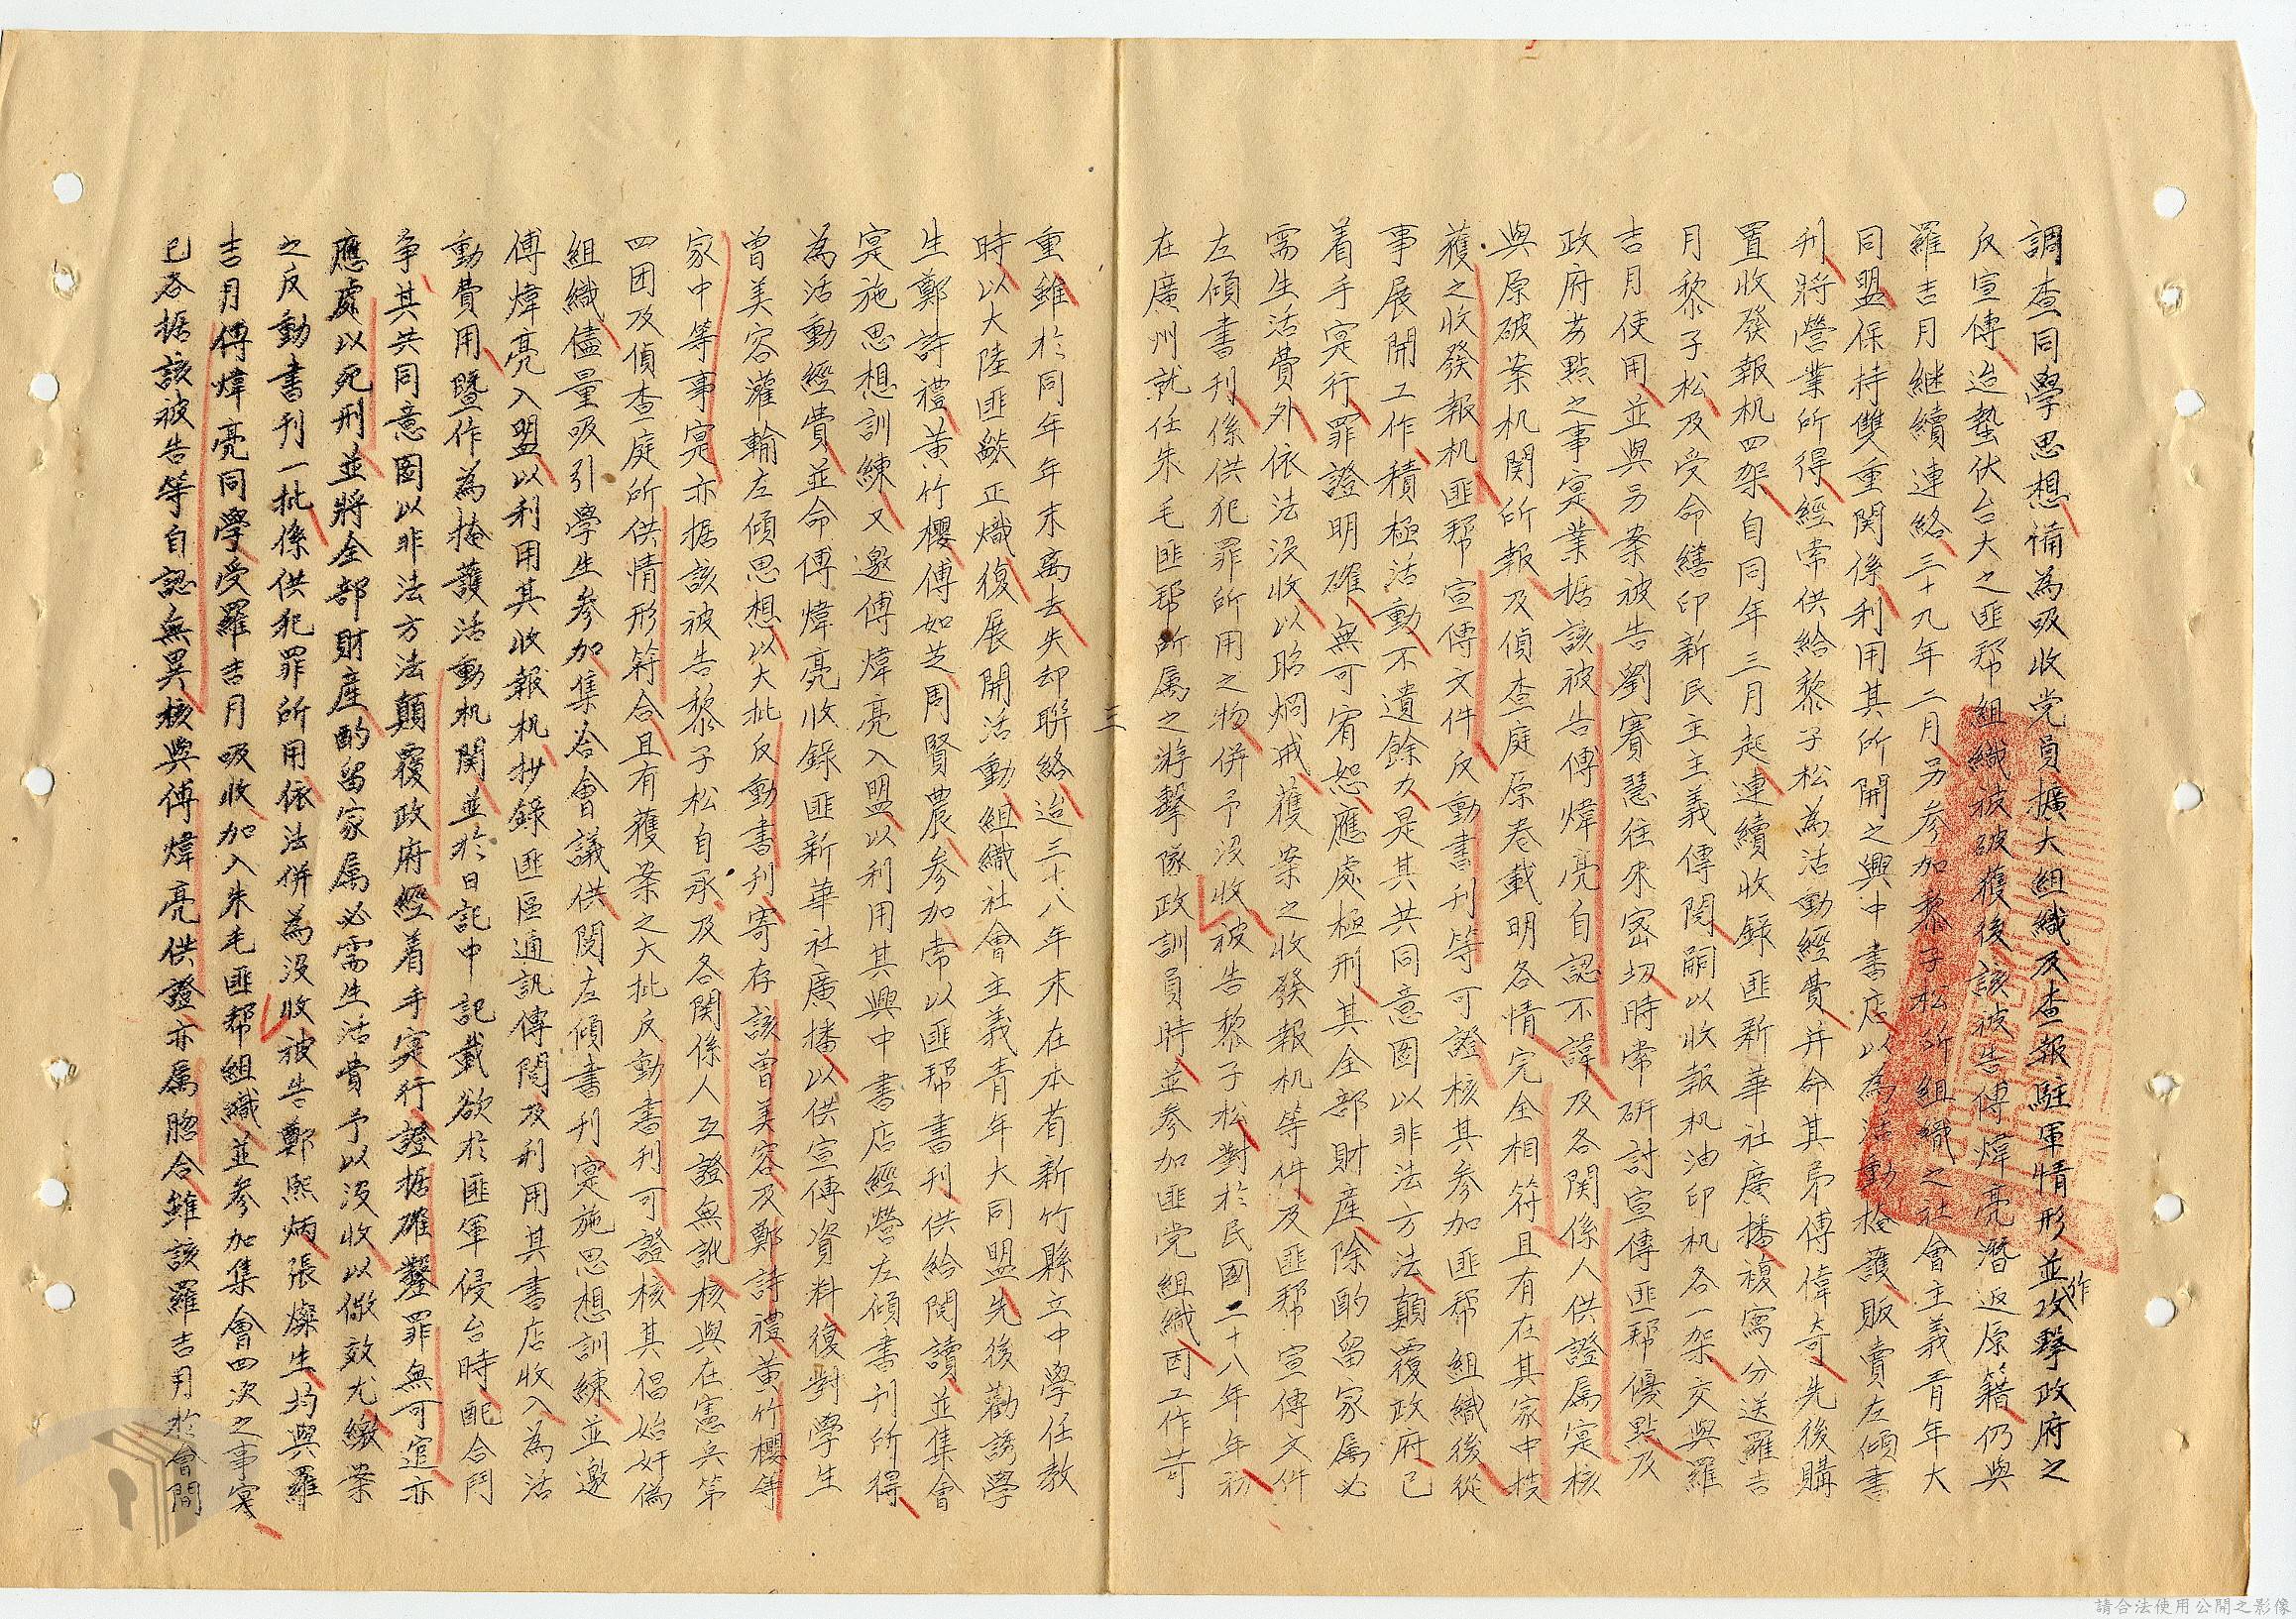 調查同學思想備為吸收党員擴大組織及查報駐軍情形並作攻擊政府之
反宣傳迨蟄伏台大之匪帮組織被破獲後該被告傅煒亮潛返原籍仍與
羅吉月継續連絡三十九年二月另参加黎子松所組織之社會主義青年大
同盟保持雙重関係利用其所開之興中書店以為活動掩護販賣左傾書
刊將營業所得經常供給黎子松為活動經費并命其弟傅偉奇先後購
置收發報机四架自同年三月起連續收錄匪新華社廣播複寫分送羅吉
月黎子松及受命繕印新民主主義傳閱嗣以收報机油印机各一架交與羅
吉月使用並與另案被告劉賽慧往來密切時常研討宣傳匪帮優點及
政府劣點之事寔業据該被告傅煒亮自認不諱及各関係人供證属寔核
與原破案机関所報及偵查庭原卷載明各情完全相符且有在其家中
獲之收發報机匪帮宣傳文件反動書刊等可證核其参加匪帮組織後從
事展開工作積極活動不遺餘力是其共同意圖以非法方法顛覆政府已
着手寔行罪證明確無可宥恕應處極刑其全部財産除酌留家属必
需生活費外依法沒收以昭烱戒獲案之收發報机等件及匪帮宣傳文件
左傾書刊係供犯罪所用之物併予沒收被告黎子松對於民國二十八年年初
在廣州就任朱毛匪帮所属之游擊隊政訓員時並参加匪党組織因工作苛
三
重雖於同年年末离去失却聯絡迨三十八年末在本省新竹縣立中學任教
時以大陸匪燄正熾復展開活動組織社會主義青年大同盟先後勸誘學
生鄭詩禮黃竹櫻傅如芝周賢農参加常以匪帮書刊供給閱讀並集會
寔施思想訓練又邀傅煒亮入盟以利用其興中書店經營左傾書刊所得
為活動經費並命傅煒亮收錄匪新華社廣播以供宣傳資料復對學生
曾美容灌輸左傾思想以大批反動書刊寄存該曾美容及鄭詩禮黃竹櫻等
家中等事寔亦据該被告黎子松自承及各関係人互證無訛核與在憲兵第
四团及偵查庭所供情形符合且有獲案之大批反動書刊可證核其倡始奸偽
組織儘量吸引學生参加集合會議供閱左傾書刊寔施思想訓練並邀
傅煒亮入盟以利用其收報机抄錄匪區通訊傳閱及利用其書店收入為活
動費用暨作為掩護活動机関並於日記中記載欲於匪軍侵台時配合鬥
争其共同意圖以非法方法顛覆政府經着手寔行證据確鑿罪無可逭亦
應處以死刑並將全部財産酌留家属必需生活費予以沒收以儆效尤繳案
之反動書刊一批係供犯罪所用依法併為沒收被告鄭熙炳張燦生均與羅
吉月傅煒亮同學受羅吉月吸收加入朱毛匪帮組織並参加集會四次之事寔
已各据該被告等自認無異核與傅煒亮供證亦属脗合雖該羅吉月於會間
請合法使用公開之影像